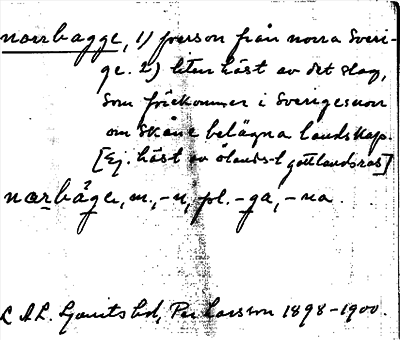 norrbagge, 1) person från norra Sveri-
ge. 2) liten häst av det slag,
som förekommer i Sveriges norr
om Skåne belägna landskap.
[Ej. häst av ölands- l. gottlandsras]
nor̲båge, m., -n, pl. -ga, -na.
L A L. Per Larsson 1898-1900.